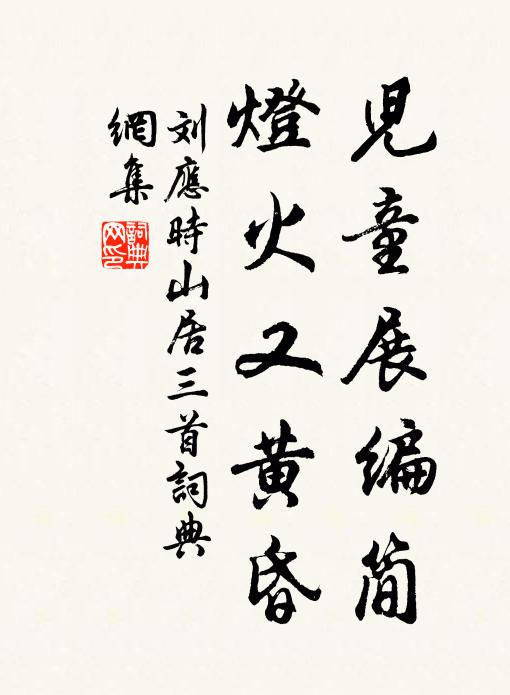 兒童展編简
燈火又黄昏
刘應時山居三首詞典
網集
詞典
网印